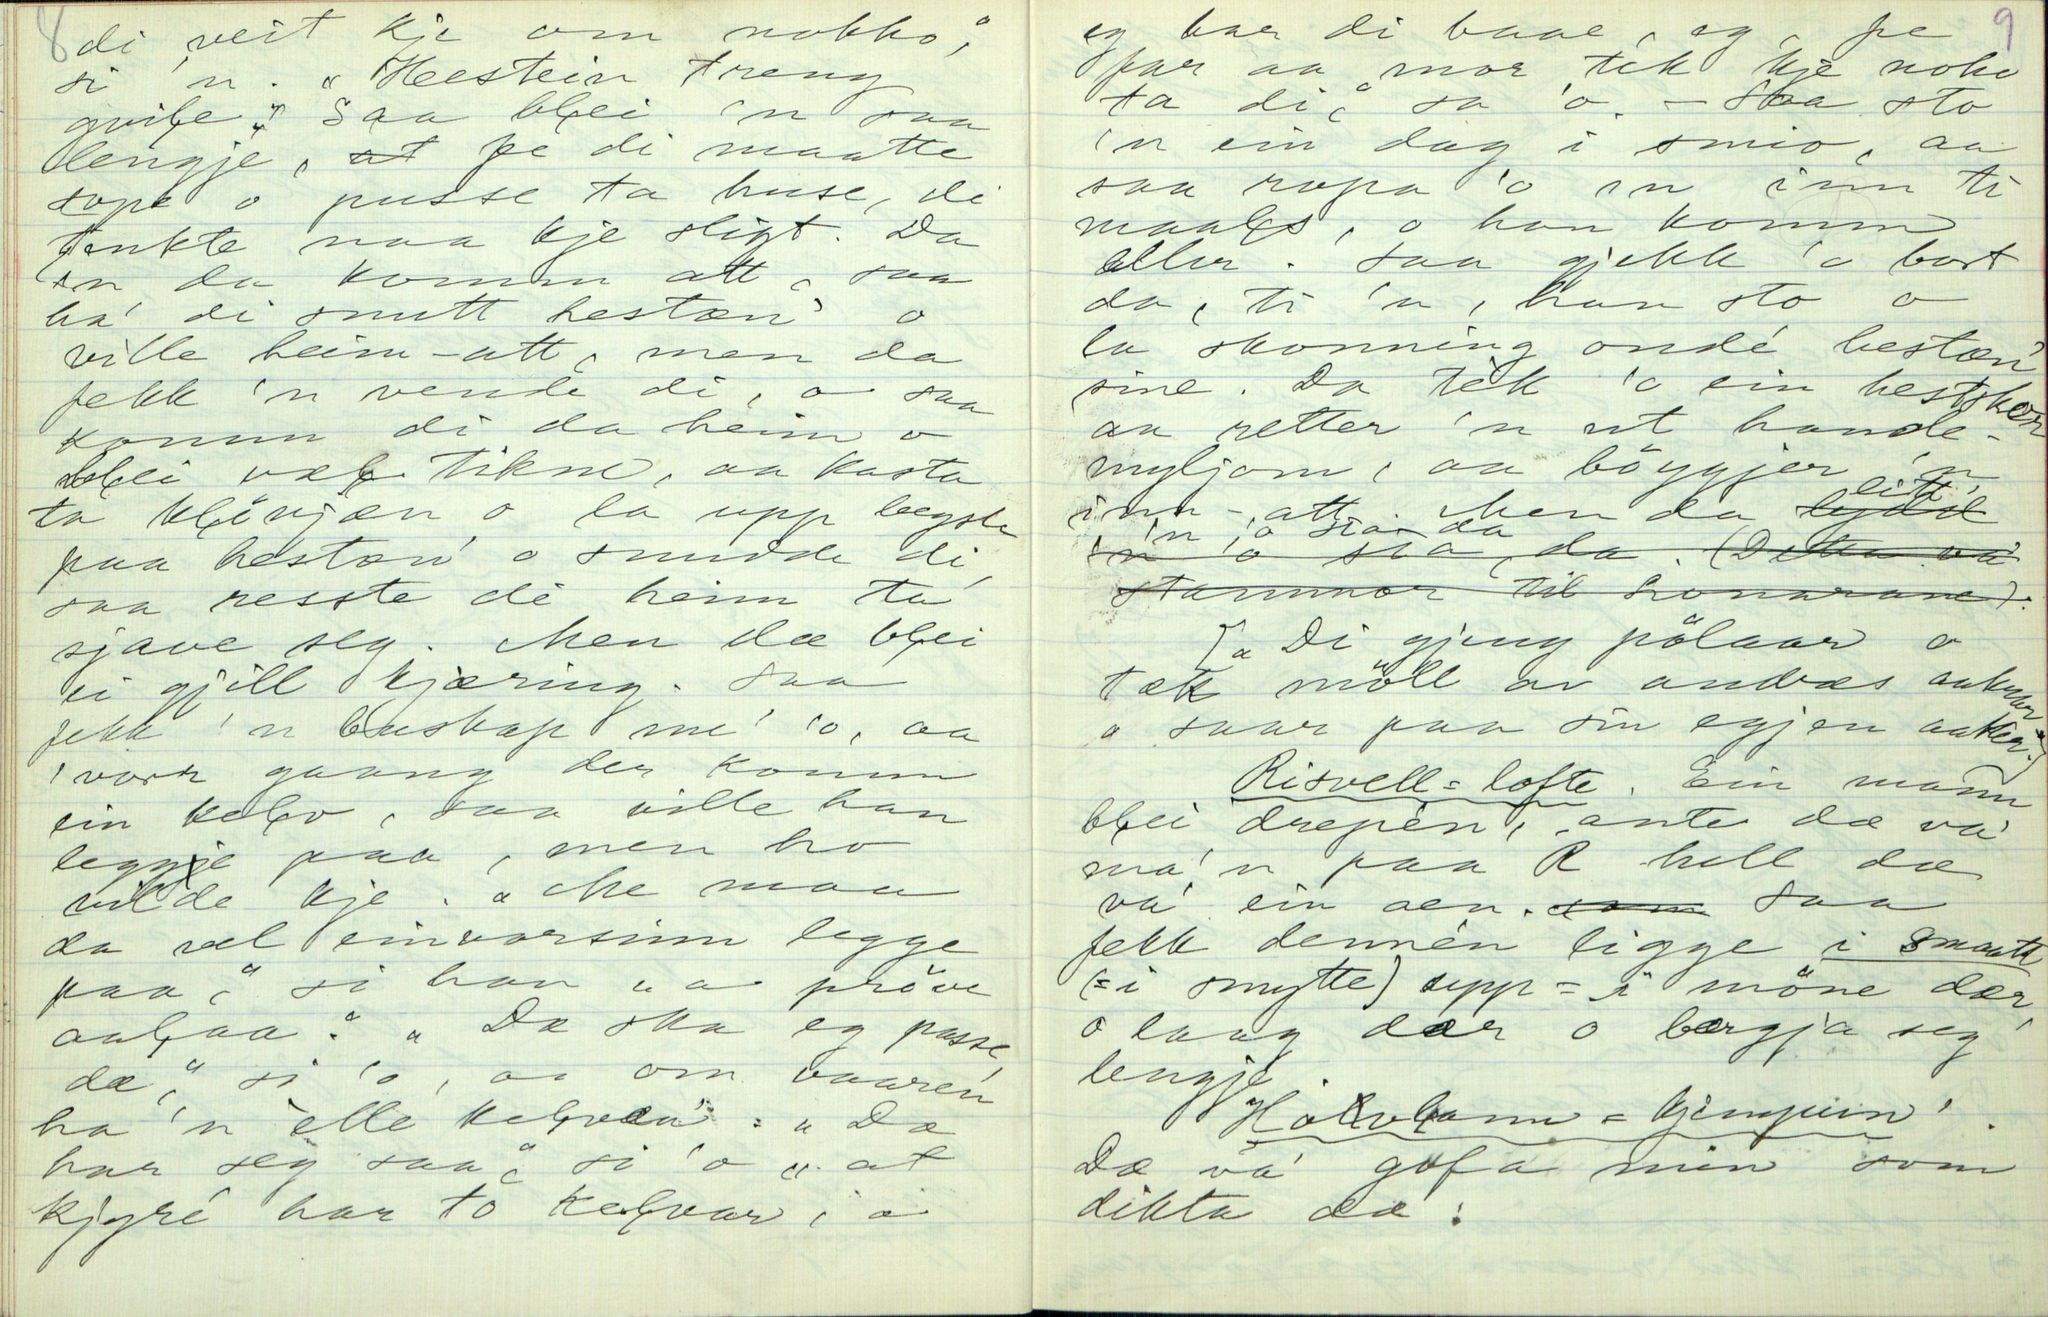 8
di veit kje om nokko,"
si 'n. "Heestein treng
qvile." Saa blei 'n saa
lengje, at fe di maatte
sope o pusse ta huse, di
tenkte naa kje sligt. Da
'n da komm att, saa
ha' di snutt hestæn' o
ville heim-att, men da
fekk 'n vende di, o saa
komm di da heim o
blei væl tikne, aa kasta
ta kløvjæn o la upp bøgste
paa hestæn' o snudde di,
saa resste di heim ta
sjave seg. Men dæ blei
ei gjill kjæring. Saa
fekk 'n buskap me' 'o, aa
'vorn gaang der komm
ein kalv, saa ville han
leggje paa, men ho
vilde kje. "Me maa
da væl einvorsinn legge
paa," si han "o prøve
aalaa." "Da ska eg passe
dæ," si 'o, aa om vaaren
ha 'n elle kalvæn: "Dæ
har seg saa," si 'o "at
kjyre har to kalvar, o
9
eg har di baae, eg, fe
far aa mor tik kje noko
ta di," sa 'o. - Saa sto
'n ein dag i smio, aa
saa ropa 'o 'n inn ti
maals, o han komm
aller. Saa gjekk 'o bort
da, ti 'n, han sto o
la skonning onde hestæn'
sine. Da tek 'o ein hestskor
aa retter 'n ut hande-
myljom, aa bøyggjer 'n
inn-att. Men da litt
'n 'o sia da
'n 'o sia da. (Detta va'
stammor til Sonarane).
["Di gjeng pølaar o
tæk møll av andræs aakrar
o saar paa sin egjen aaker."]
Risvell-lofte. Ein mann
blei drepen, ante dæ va'
ma'n paa R hell dæ
va' ein aen. som Saa
fekk dennen ligge i smaatt
(= i smytte) upp-i møne dær,
o laag dær o bergja seg
lengje.
Holvlann-kjempun'.
Dæ va' gofa min som
dikta dæ: